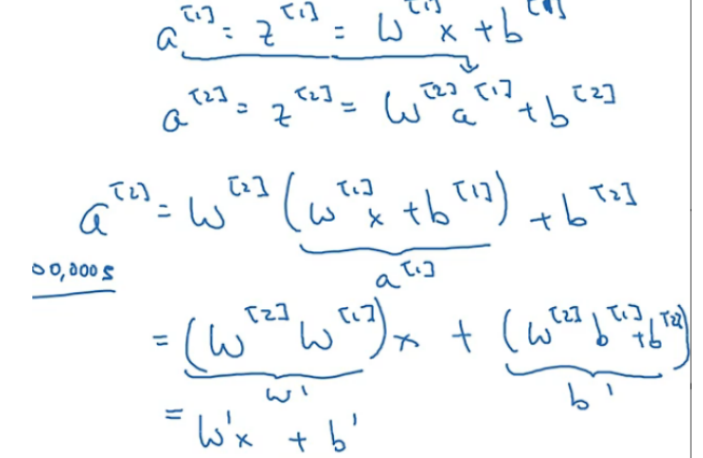 a^[1] = z^[1] = W^[1] x + b^[1]
a^[2] = z^[2] = W^[2] a^[1] + b^[2]
a^[2] = W^[2] (W^[1] x + b^[1]) + b^[2]
a^[1]
00,000s
= (W^[2] W^[1]) x + (W^[2] b^[1] + b^[2])
W' b'
= W'x + b'